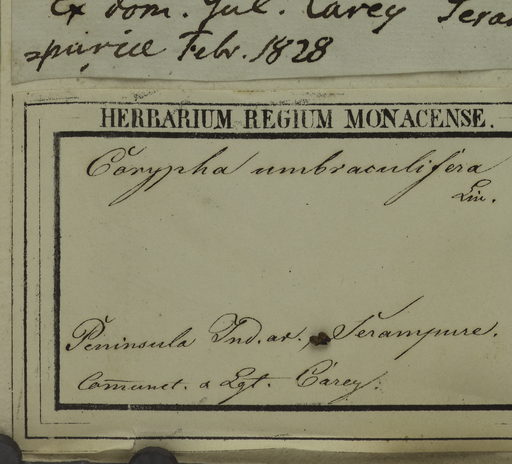 Ex dom. Gul. Carey Seram
purice Febr. 1828
HERBARIUM REGIUM MONACENSE.
Corypha umbraculifera
Lin.
Peninsula Ind. or. Serampure.
Comunct. a Carey.